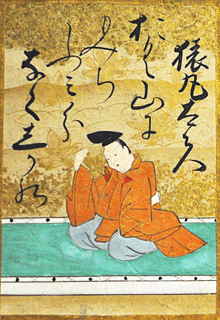 猿丸大夫
おく山に
もみち
ふミ分
なくしかの